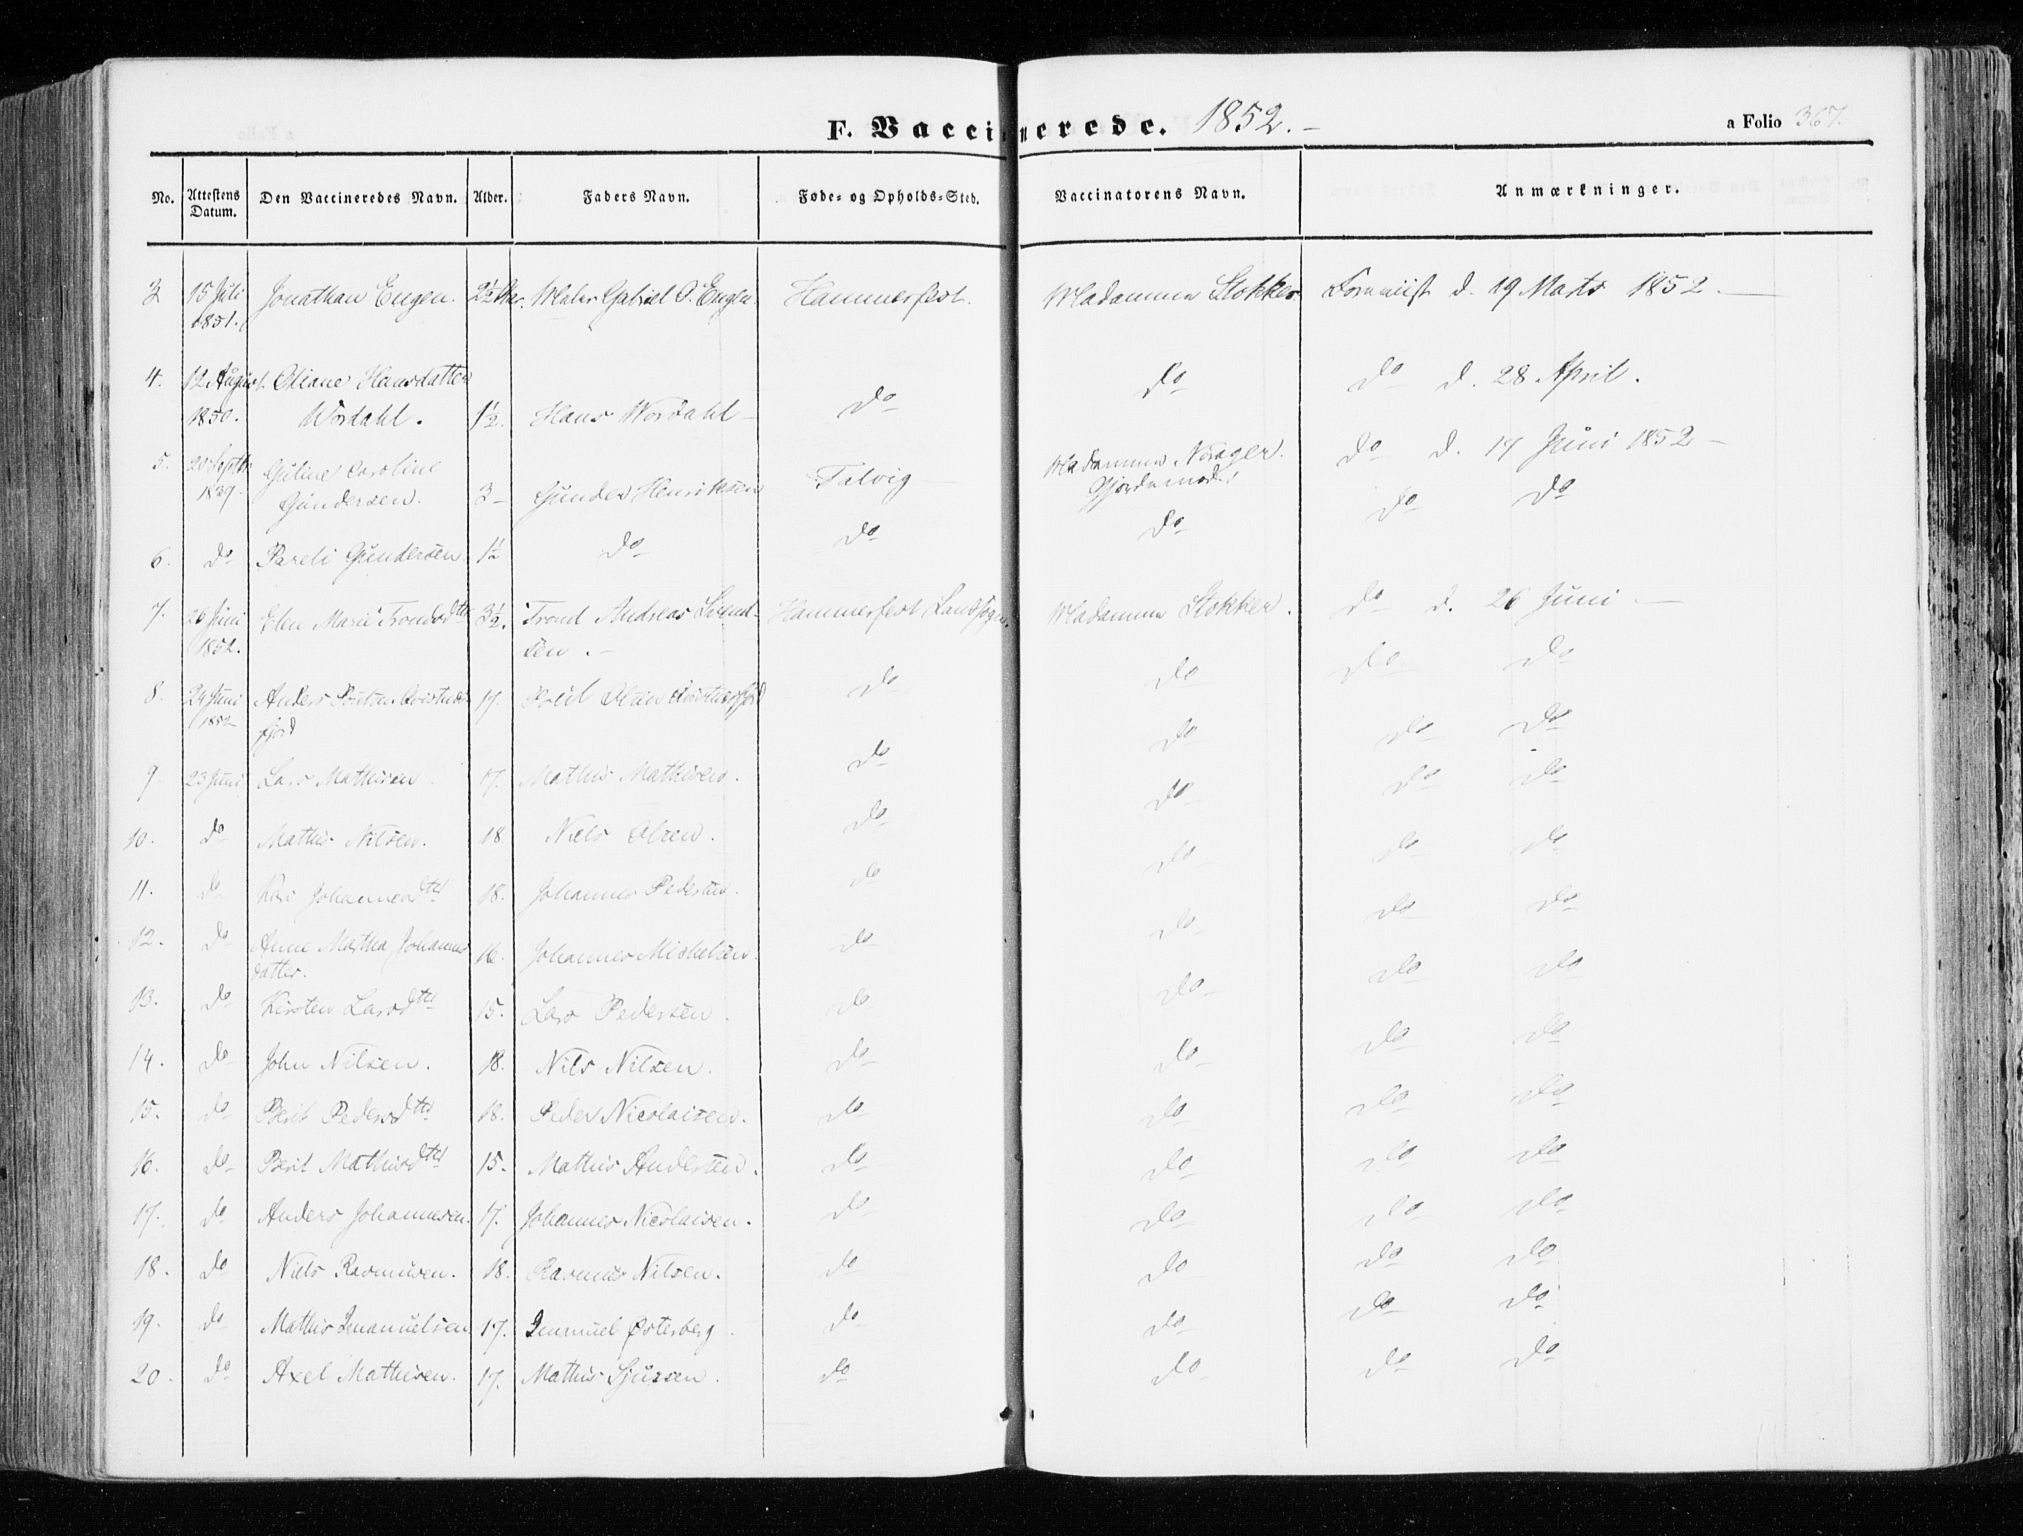 F. Vaccinerede. 1852.- a Folio 367.
No. Attestens Datum. Den Vaccineredes Navn. Alder. Faders Navn. Føde- og Opholds-Sted. Vaccinatorens Navn. Anmærkninger.
3 15 Juli 1851. Jonathan Engen. 2½ Gabriel O. Engen Hammerfest. Madamme Stokker d. 19 Marts 1852.
4. 12 August. 1850. Oliane Hansdatter Wordahl. 1½. Hans Wordahl do do do d. 28 April.
5. 20 Septbr Guline Caroline Gundersen. 3 Gunder Henriksen Talvig Madamme Norager. do d. 17 Juni 1852
6. do Pareli Gundersen. 1½ do do do do do
7. 26 Juni 1852. Elen Marie Trondsdtr 3½. Trond Andreas Svend-
sen. Hammerfest Landsogn. Madamme Stokker. do d. 26 Juni
8. 24 Juni 1852 Anders 17. Poul Olsen do do do do
fjord
9. 23 Juni Lars Mathisen. 17. Mathis Mathisen. do do do do
10. do Mathis Nilsen. 18. Niels Olsen. do do do do
11. do Kari Johannesdtr 18. Johannes Pedersen. do do do do
12. do Anne Martha Johannes
datter. 16. Johannes Mickelsen. do do do do
13. do Kirsten Larsdtr 15. Lars Pedersen. do do do do
14. do John Nilsen. 18. Nils Nilsen. do do do do
15. do Berit Pedersdtr 18. Peder Nicolaisen. do do do do
16. do Berit Mathisdtr 15. Mathis Andersen. do do do do
17. do Anders Johannesen. 17. Johannes Nicolaisen. do do do do
18. do Niels Rasmusen. 18. Rasmus Nilsen. do do do do
19. do Mathis Imanuelsen 17. Imanuel Østerberg. do do do do
20. do Axel Mathisen. 17. Mathis Sjursen. do do do do